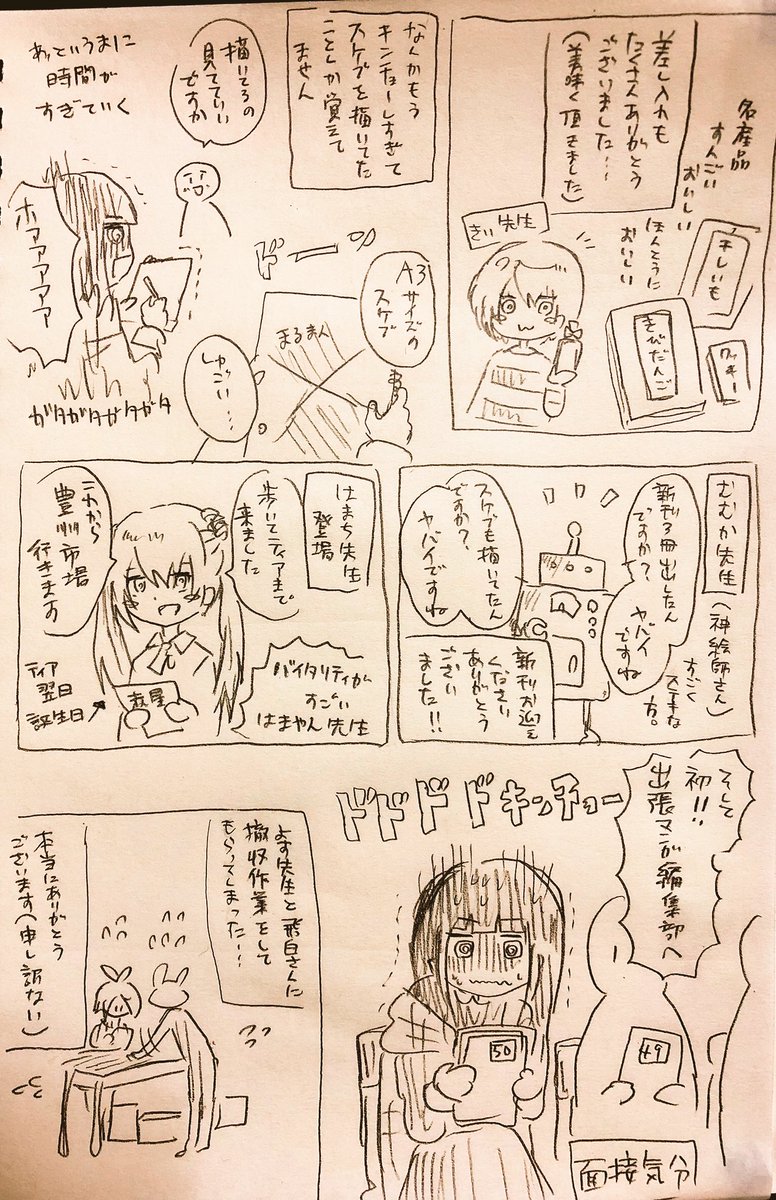 差し入れも
たくさんありがとう
ございました…
(美味く頂きました)
名産品
すんごい
おいしい
干しいも
ほんとうに
おいしい
きびだんご
クッキー
きい先生
なんかもう
キンチョーしすぎて
スケブを描いてた
ことしか覚えて
ません
描いてるの
見てていい
ですか
あっというまに
時間が
すぎていく
ホアアアアア
ガタガタガタガタガタ
ドーーン
A3
サイズの
スケブ
まるまん
しゅごい…
むむか先生
(神絵師さん)
すごく
ステキな
方。
新刊3冊出したん
ですか?
ヤバイ
ですね
スケブも描いてたん
ですか?
ヤバイですね
新刊お迎え
ください
ありがとう
ござい
ました!!
はまち先生
登場
歩いてティアまで
来ました
これから
豊洲市場
行きます
バイタリティが
すごい
はまやん先生
ティア
翌日
誕生日
そして
初!!
出張マンガ編集部へ
ドドドドキンチョー
50
49
面接気分
よす先生と飛白さんに
撤収作業をして
もらってしまった…
本当にありがとう
ございます(申し訳ない)